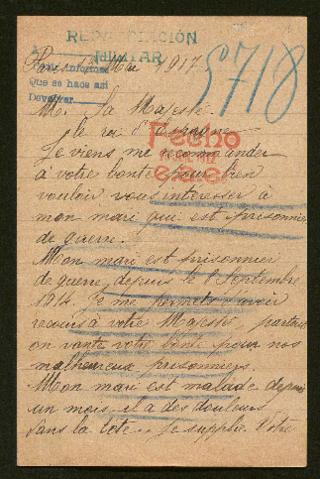 REPATRIACIÓN
MILITAR
Paris 7 Mai 1917
5718
Que se hace así
M. Sa Majesté
le roi d'Espagne
Fecho
Je viens me recommander
à votre bonté pour bien
vouloir vous intéresser à
mon mari qui est prisonnier
de guerre.
Mon mari est prisonnier
de guerre, depuis le 8 Septembre
1914. Je me permets d'avoir
recours à votre Majesté, partout
on vante votre bonté pour nos
malheureux prisonniers.
Mon mari est malade depuis
un mois, il a des douleurs
dans la tête. Je supplie Votre